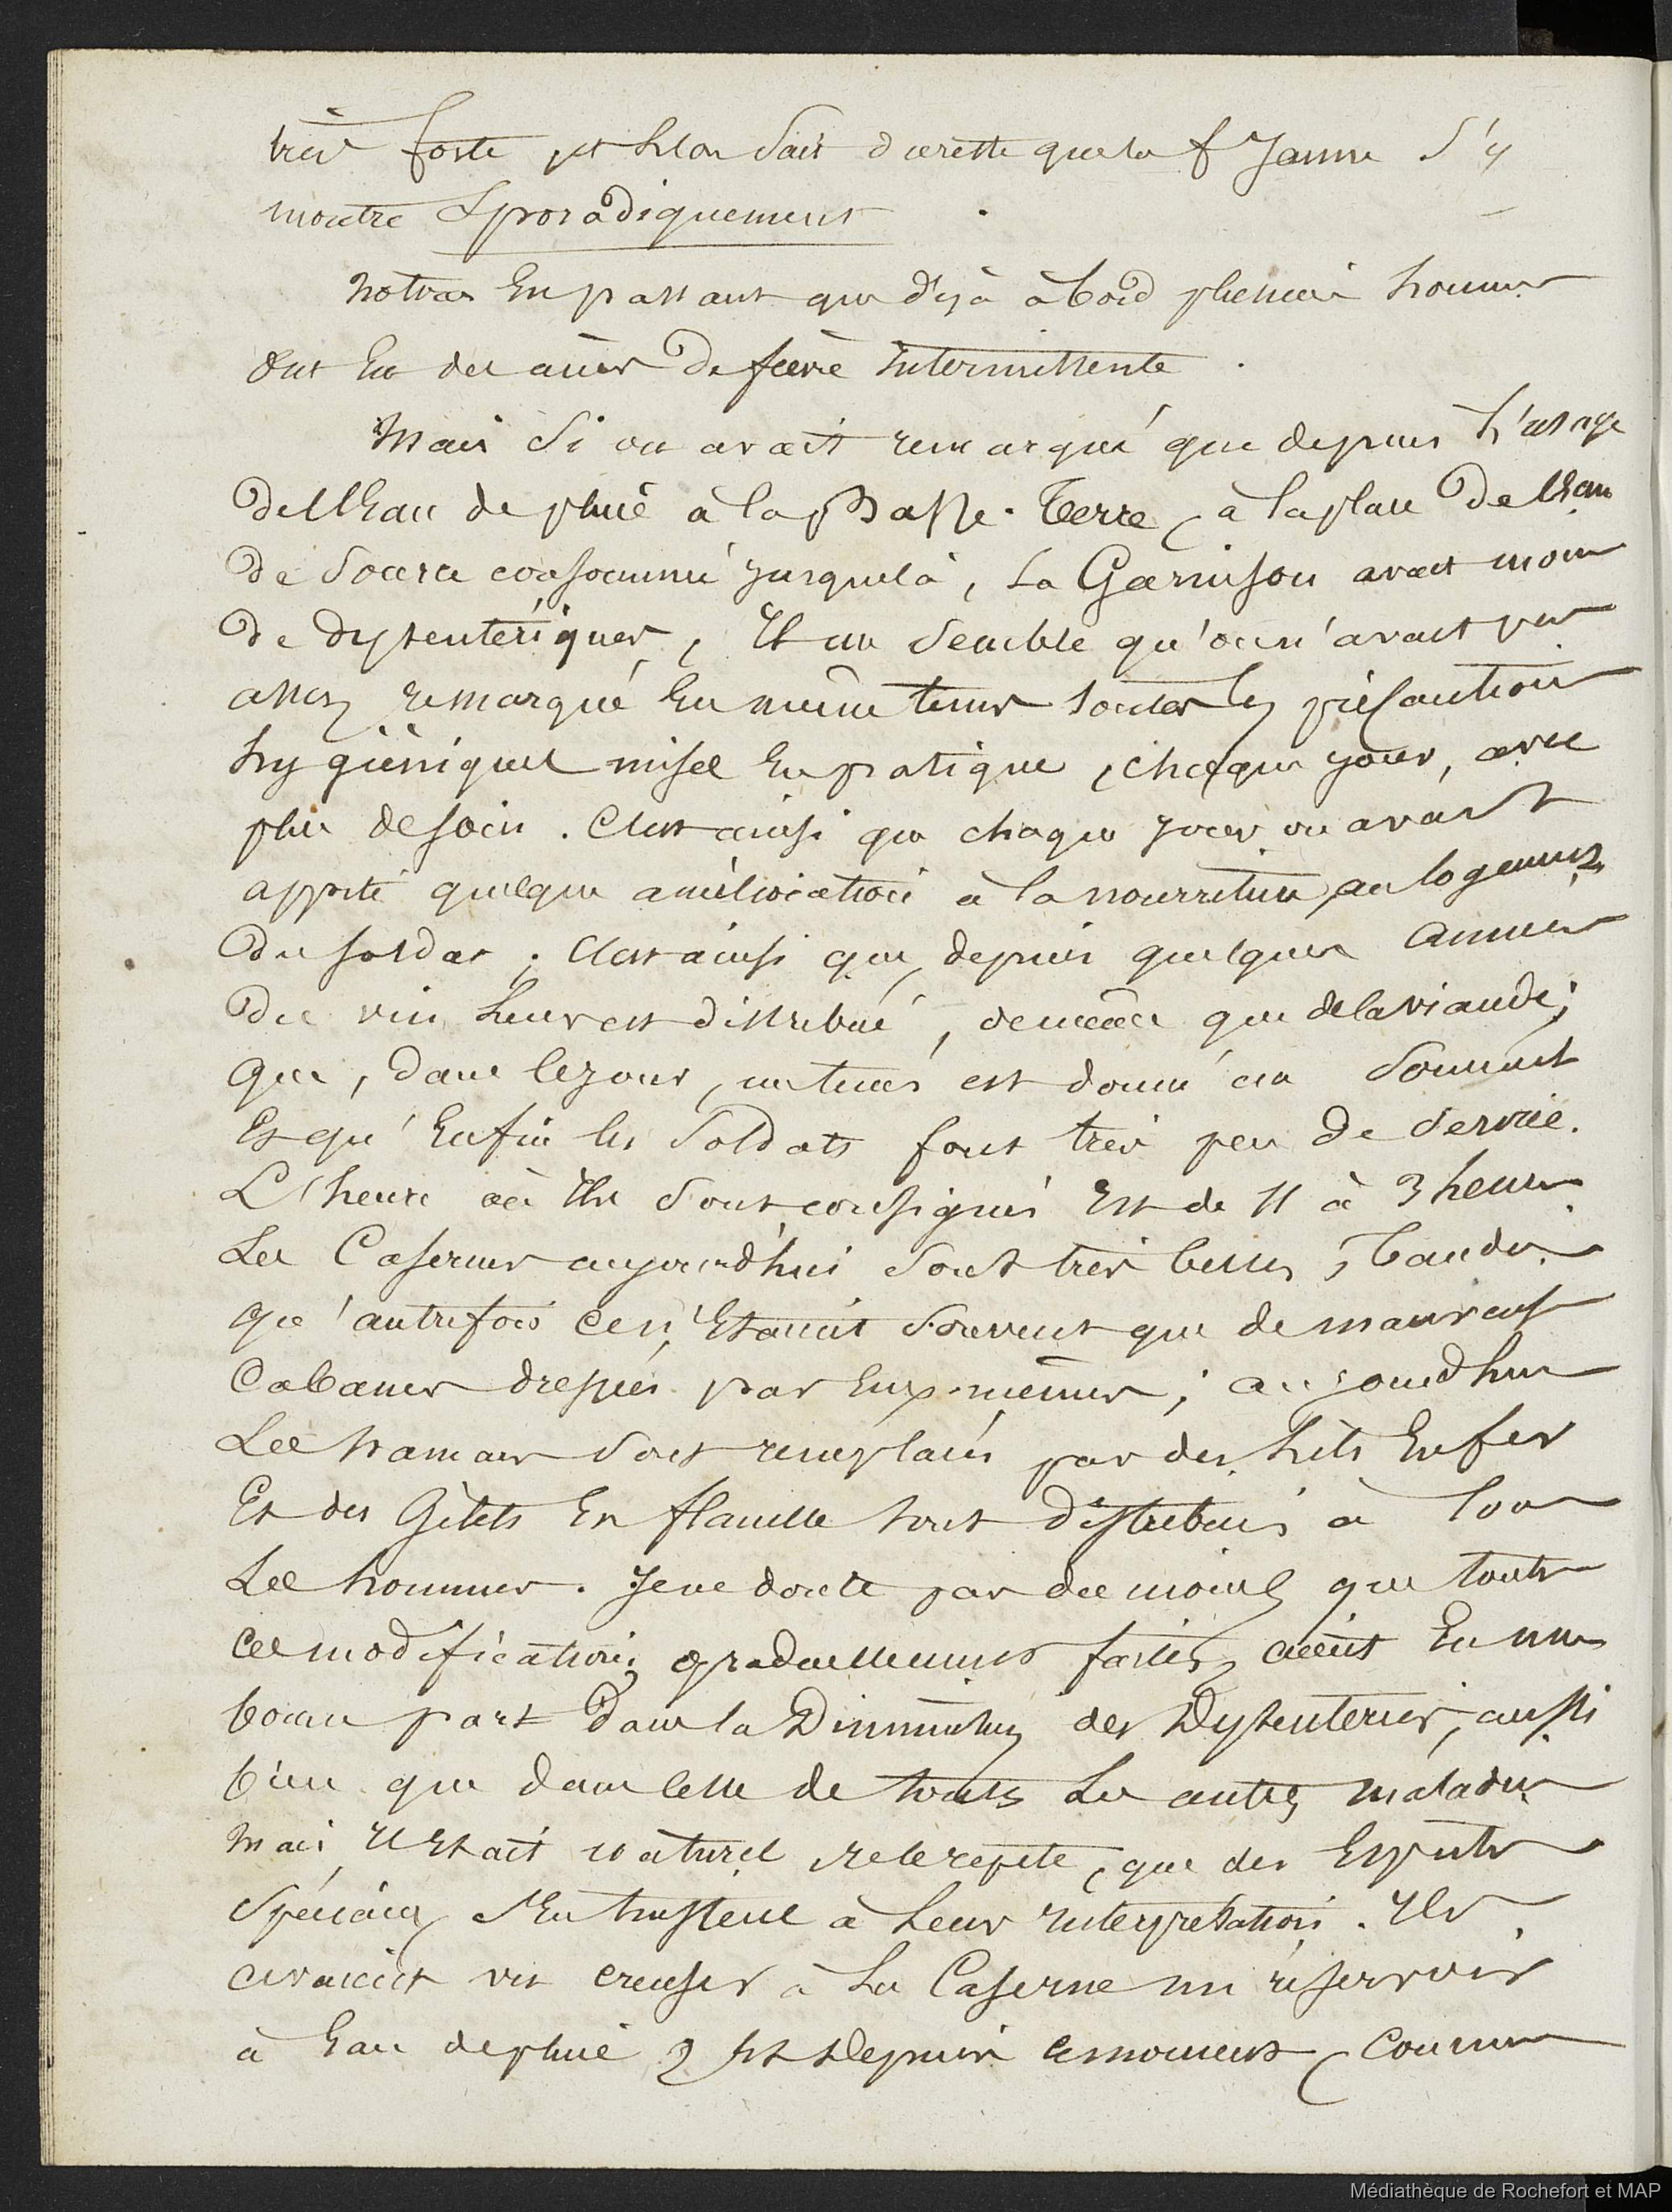 très forte et l'on sait du reste que la f Jaune s'y
montre Sporadiquement.
Notons En passant que déjà à bord plusieurs hommes
ont Eu des accès De fièvre intermittente.
Mais si on avait remarqué que depuis L'usage
De l'Eau de pluie à la Basse-Terre, à la place De l'Eau
De Source consommée jusque là, La Garnison avait moins
De dysentériques, Il me semble qu'on n'avait pas
assez remarqué En même tems toutes les précautions
hygièniques mises En pratique, chaque jour, avec
plus de soin. C'est ainsi que chaque jour on avait
apporté quelque amélioration à la nourriture, au logement
Du soldat; c'est ainsi que, depuis quelques années
Du vin Leur est distribué, de même que de la viande;
que, dans le jour, un tems est donné au Sommeil
Et qu'Enfin les Soldats font très peu De Service.
L'heure où Ils Sont consignés Est de 11 à 3 heures.
Les Casernes aujourd'hui Sont très belles, Tandis
qu'autrefois ce n'Etait Souvent que de mauvaises
Cabanes dressées par Eux-mêmes; aujourdhui
Les hamacs Sont remplacés par des Lits En fer
Et des Gilets En flanelle sont Distribués à tous
Les hommes. Je ne doute pas du moins que toutes
ces modifications, graduellement faites, aient Eu une
bonne part Dans la Diminution des Dysenteries, aussi
bien que dans celle de toutes Les autres maladies
Mais, Il Etait naturel, je le répète, que des Esprits
Spéciaux S'En tinssent à Leur Interprétation. Ils
avaient vu creuser à La Caserne un réservoir
à Eau de pluie Et Depuis ce moment, comme